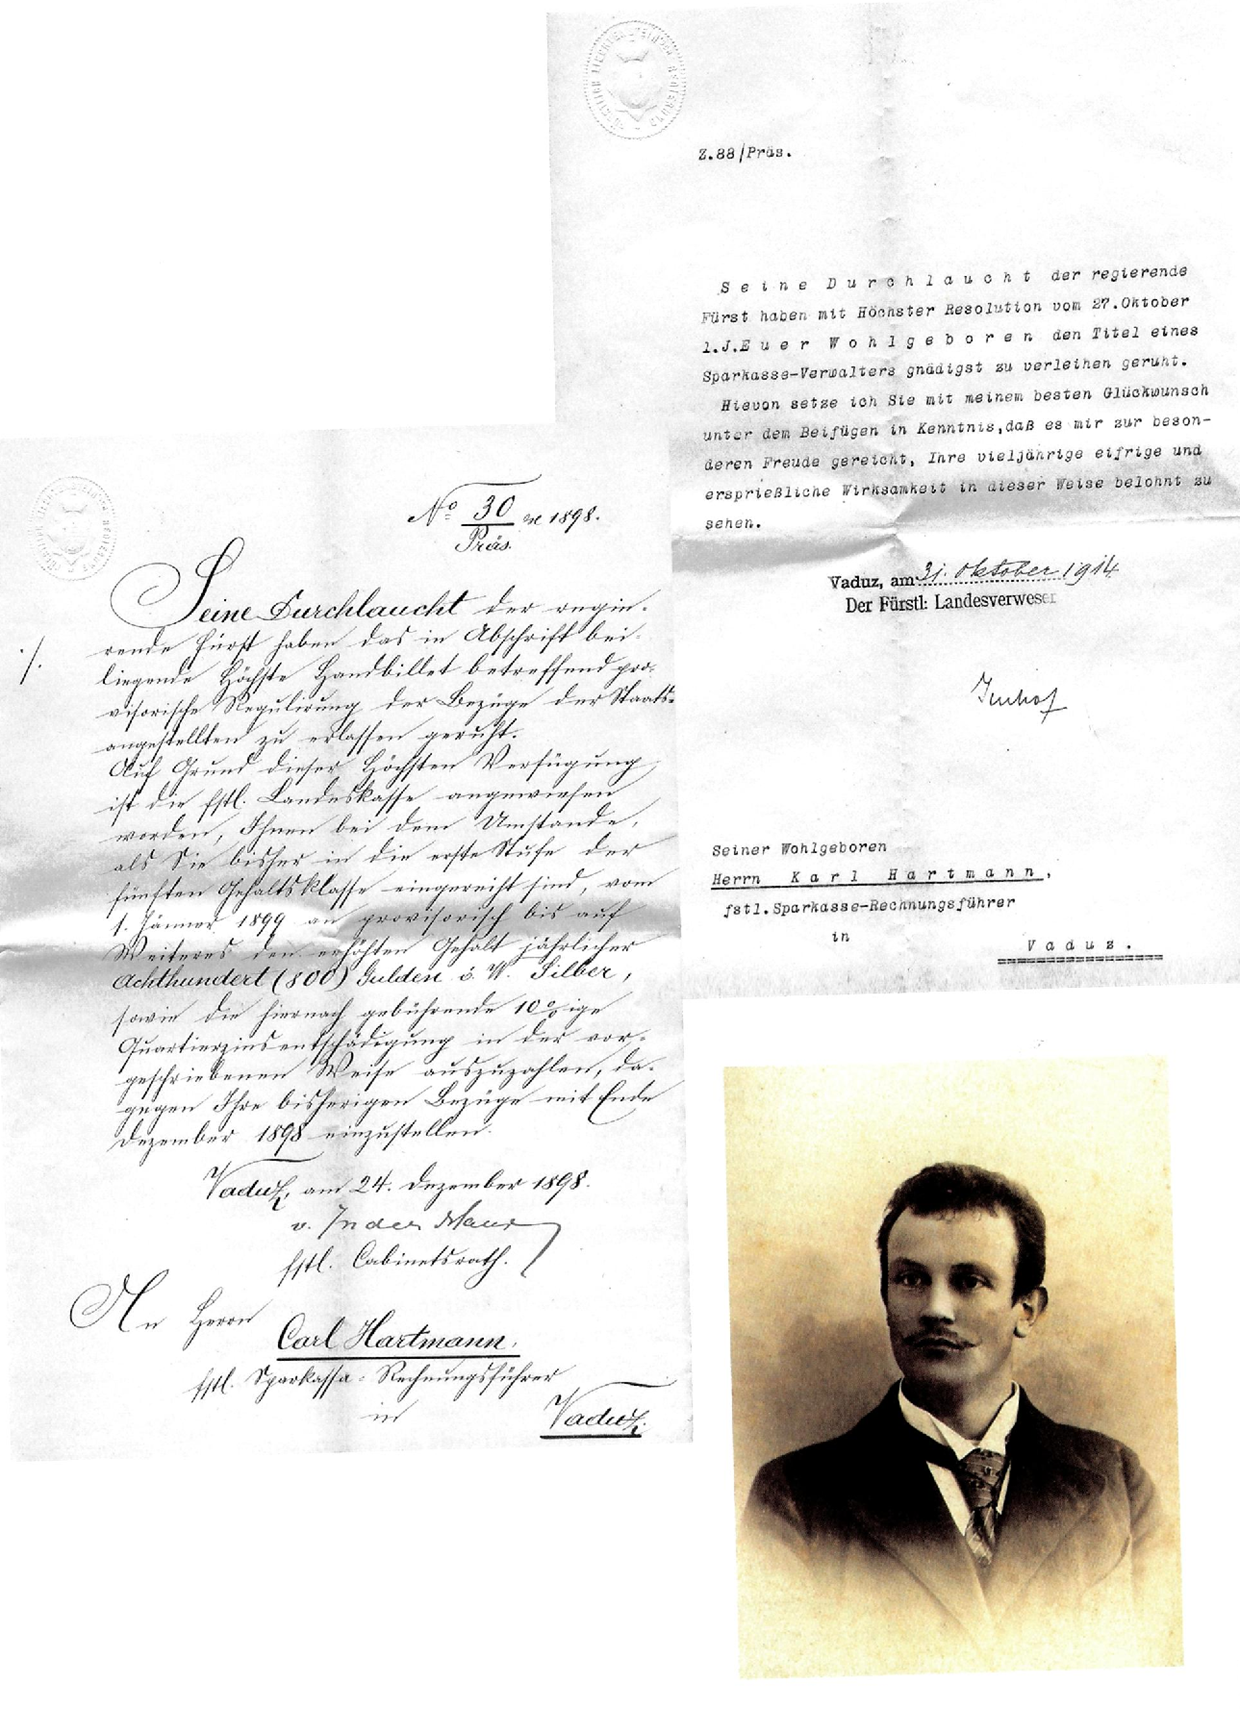 Z.88/Präs.
Seine Durchlaucht der regierende
Fürst haben mit Höchster Resolution vom 27.Oktober
l.J.Euer Wohlgeboren den Titel eines
Sparkasse-Verwalters gnädigst zu verleihen geruht.
Hievon setze ich Sie mit meinem besten Glückwunsch
unter dem Beifügen in Kenntnis,daß es mir zur beson-
deren Freude gereicht, Ihre vieljährige eifrige und
ersprießliche Wirksamkeit in dieser Weise belohnt zu
sehen.
Vaduz, am 31. Oktober 1914
Der Fürstl: Landesverweser
Imhof
Seiner Wohlgeboren
Herrn Karl Hartmann,
fstl.Sparkasse-Rechnungsführer
in
Vaduz.
No 30 de 1898.
Präs.
Seine Durchlaucht der regie-
rende Fürst haben das in Abschrift bei-
liegende Höchste Handbillet betreffend pro-
visorische Regulirung der Bezüge der Staats-
angestellten zu erlassen geruht.
Auf Grund dieser Höchsten Verfügung
ist die fstl. Landeskasse angewiesen
worden, Ihnen bei dem Umstande,
als Sie bisher in die erste Stufe der
fünften Gehaltsklasse eingereiht sind, vom
1. Jänner 1899 an provisorisch bis auf
Weiteres den erhöhten Gehalt jährlicher
Achthundert (800) Gulden ö. W. Silber,
sowie die hiernach gebührende 10%ige
Quartierzinsentschädigung in der vor-
geschriebenen Weise auszuzahlen, da-
gegen Ihre bisherigen Bezüge mit Ende
Dezember 1898 einzustellen.
Vaduz, am 24. Dezember 1898.
v. In der Maur
fstl. Cabinetsrath.
An Herrn
Carl Hartmann.
fstl. Sparkassa-Rechnungsführer
in
Vaduz.